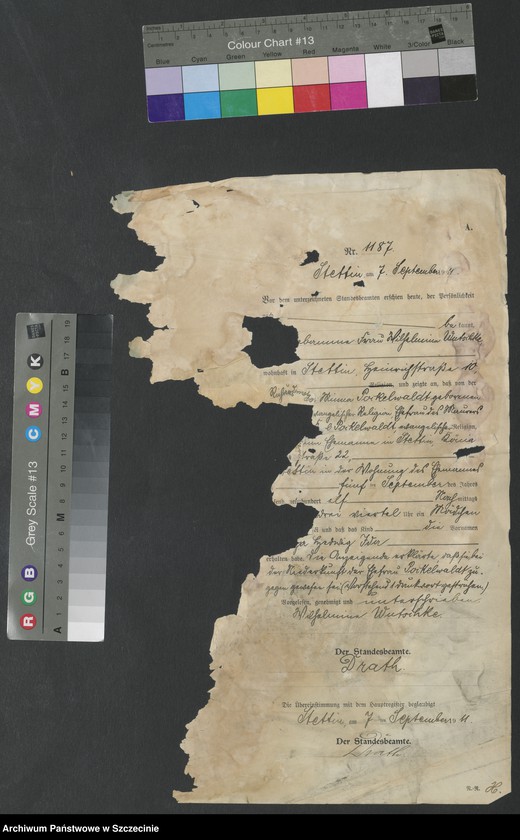 Colour Chart #13
Blue Cyan Green Yellow Red Magenta White 3/Color Black
Grey Scale #13
R G B M W G K C Y M
A.
Nr. 1187
Stettin am 7. September 11.
Vor dem unterzeichneten Standesbeamten erschien heute, der Persönlichkeit
be kannt,
bamme Frau Wilhelmine Wutschke
wohnhaft in Stettin, Heinrichstraße 10
Religion, und zeigte an, daß von der
Minna Porkelwaldt geborenen
evangelischer Religion Ehefrau des Maurers
Porkelwaldt evangelischer Religion,
Ehemanne in Stettin König
straße 22,
in der Wohnung des Ehemannes
fünf September des Jahres
elf Nachmittags
drei viertel Uhr ein Mädchen
und daß das Kind die Vornamen
Hedwig Ida
erhalten habe. Die Anzeigende erklärte, daß sie bei
der Niederkunft der Ehefrau Porkelwaldt zu-
gegen gewesen sei (Vorstehend 1 Druckwort gestrichen)
Vorgelesen, genehmigt und unterschrieben
Wilhelmine Wutschke.
Der Standesbeamte.
Drath
Die Übereinstimmung mit dem Hauptregister beglaubigt
Stettin, am 7. September 11.
Der Standesbeamte.
Drath
Archiwum Państwowe w Szczecinie